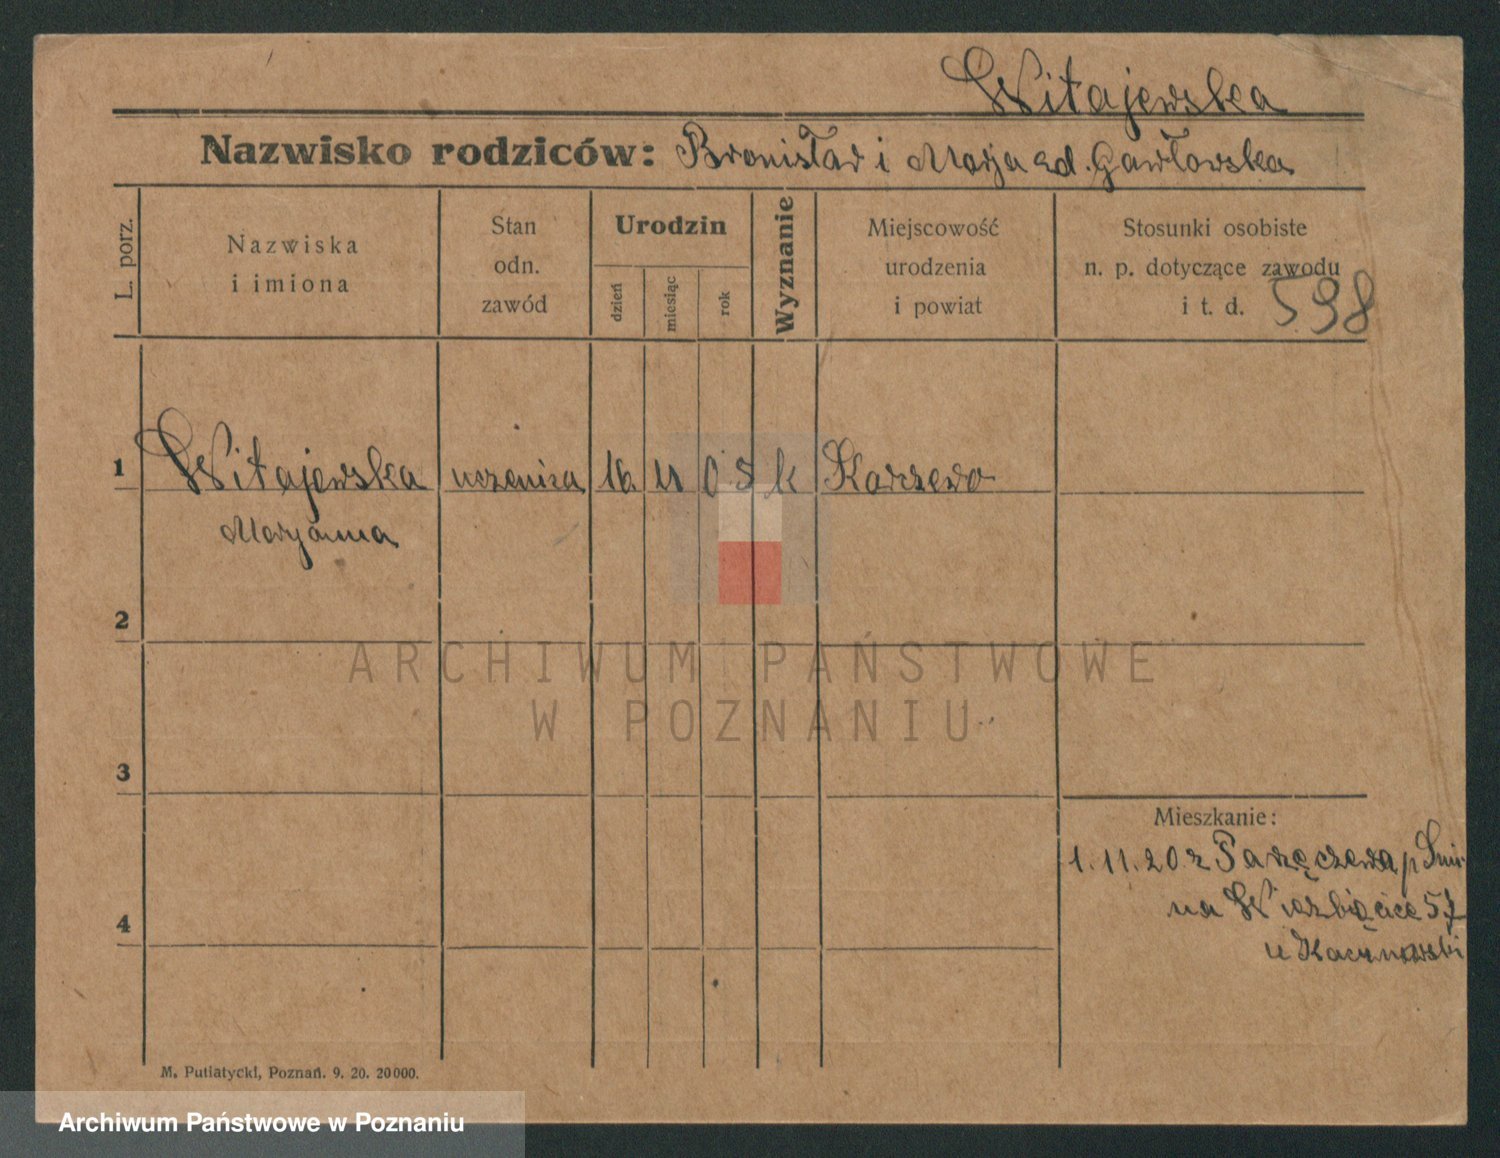 Witajewska
Nazwisko rodziców: Bronisław i Marja zd. Gawłowska
L. porz.
Nazwiska
i imiona
Stan
odn.
zawód
Urodzin
dzień
miesiąc
rok
Wyznanie
Miejscowość
urodzenia
i powiat
Stosunki osobiste
n. p. dotyczące zawodu
i t. d. 598
1 Witajewska uczenica 16 11 05 k Karczewo
Maryanna
2
ARCHIWUM PAŃSTWOWE
W POZNANIU
3
Mieszkanie:
1.11.20 z Parzęczewa p
4
na Wierzbięcice 57
u Kaczmarski
M. Putiatycki, Poznań. 9. 20. 20000.
Archiwum Państwowe w Poznaniu